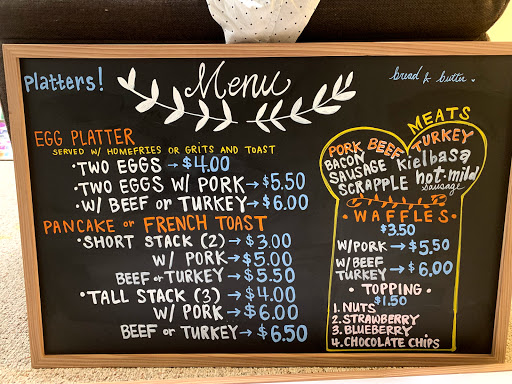 Platters!
Menu
bread & butter.
EGG PLATTER
SERVED W/ HOMEFRIES OR GRITS AND TOAST
• TWO EGGS → $4.00
• TWO EGGS W/ PORK → $5.50
• W/ BEEF or TURKEY → $6.00
PANCAKE or FRENCH TOAST
• SHORT STACK (2) → $3.00
W/ PORK → $5.00
BEEF or TURKEY → $5.50
• TALL STACK (3) → $4.00
W/ PORK → $6.00
BEEF or TURKEY → $6.50
MEATS
PORK BEEF TURKEY
BACON
SAUSAGE
SCRAPPLE
Kielbasa
hot • mild
sausage
• WAFFLES •
$3.50
W/PORK → $5.50
W/BEEF
TURKEY → $6.00
• TOPPING •
$1.50
1. NUTS
2. STRAWBERRY
3. BLUEBERRY
4. CHOCOLATE CHIPS